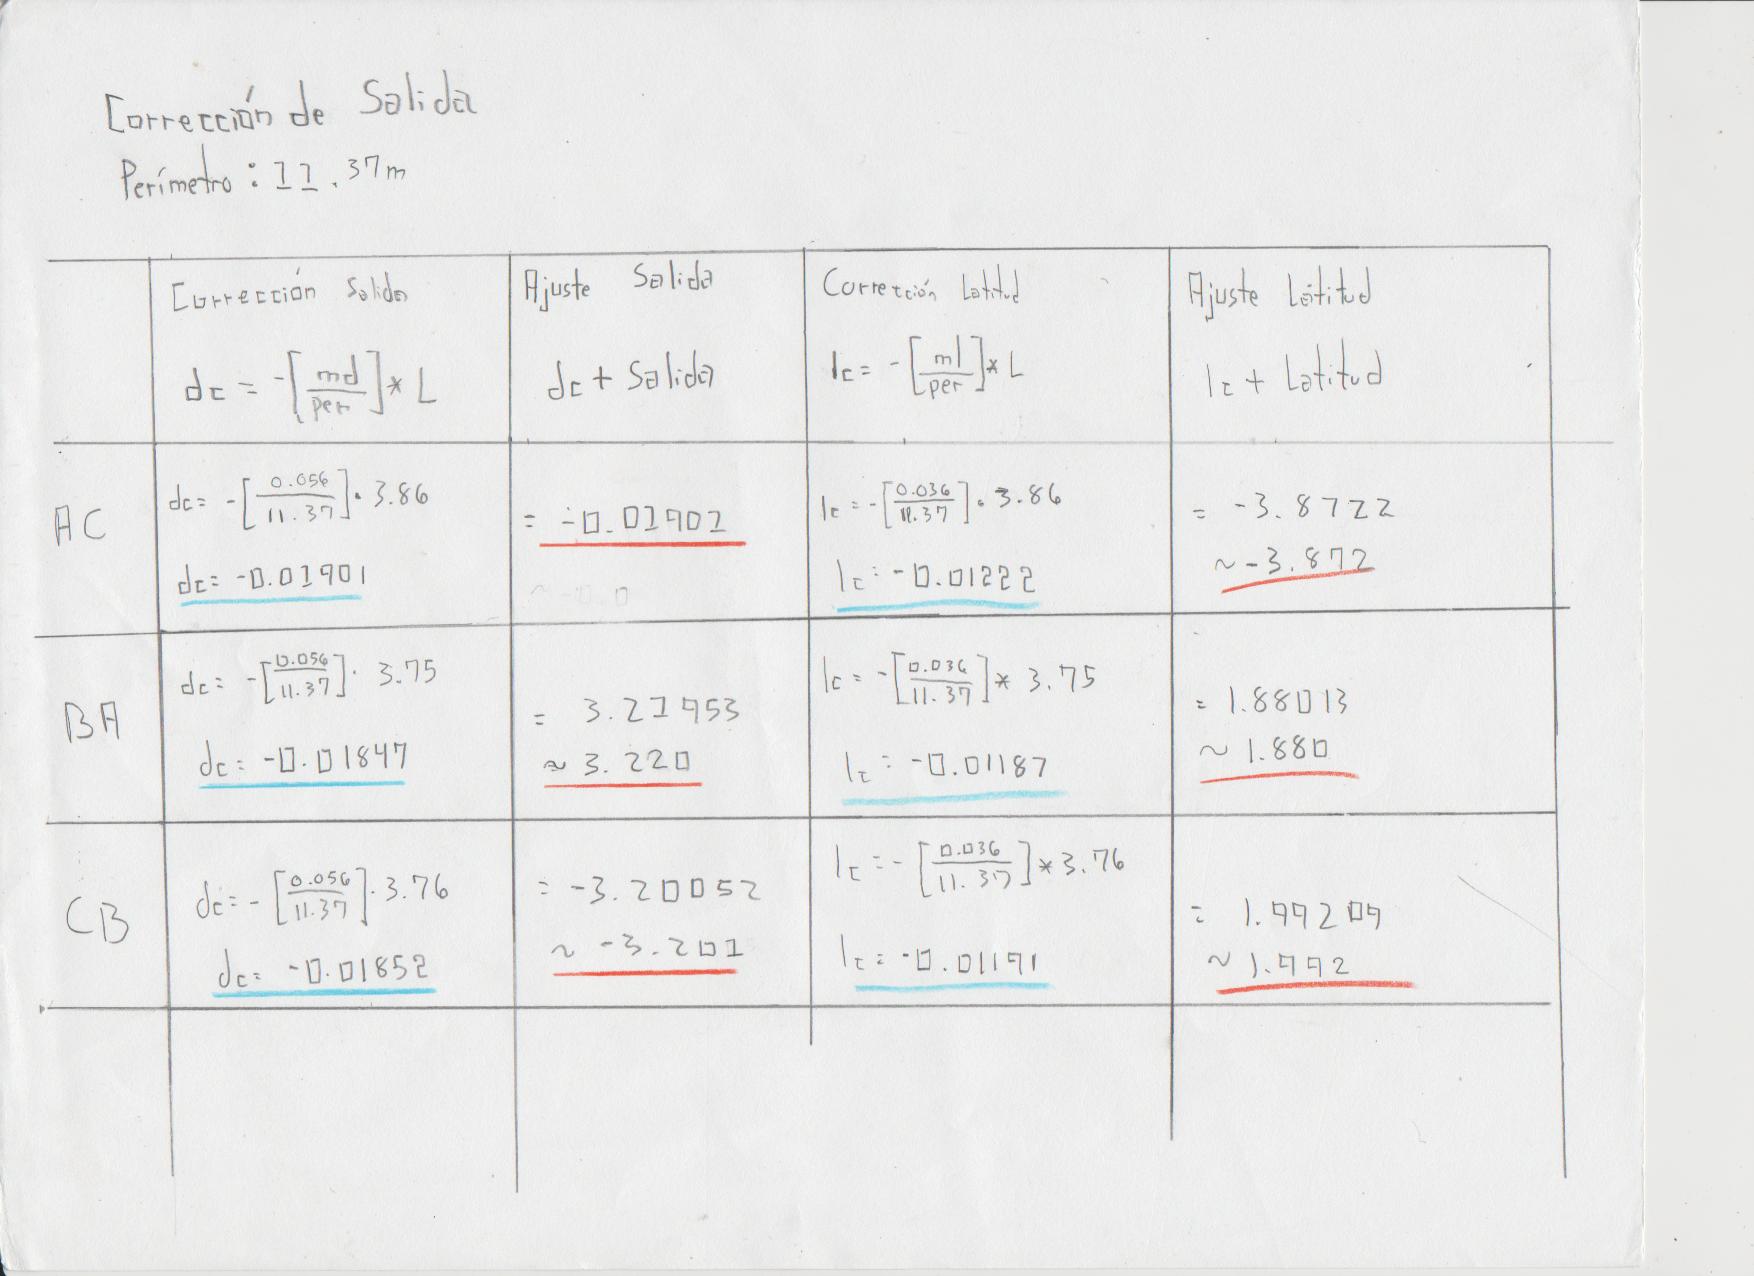 Corrección de Salida
Perímetro: 11.37m
Corrección Salida
Ajuste Salida
Corrección Latitud
Ajuste Latitud
dc = -[md/per]* L
dc + Salida
lc = -[ml/per]* L
lc + Latitud
AC
dc= -[0.056/11.37]· 3.86
dc= -0.01901
= -0.01901
lc = -[0.036/11.37]· 3.86
lc = -0.01222
= -3.8722
~ -3.872
BA
dc= -[0.056/11.37]· 3.75
dc= -0.01847
= 3.21953
≈ 3.220
lc = -[0.036/11.37]* 3.75
lc = -0.01187
= 1.88013
~ 1.880
CB
dc= -[0.056/11.37]· 3.76
dc= -0.01852
= -3.20052
~ -3.201
lc = -[0.036/11.37]* 3.76
lc = -0.01191
= 1.99209
~ 1.992